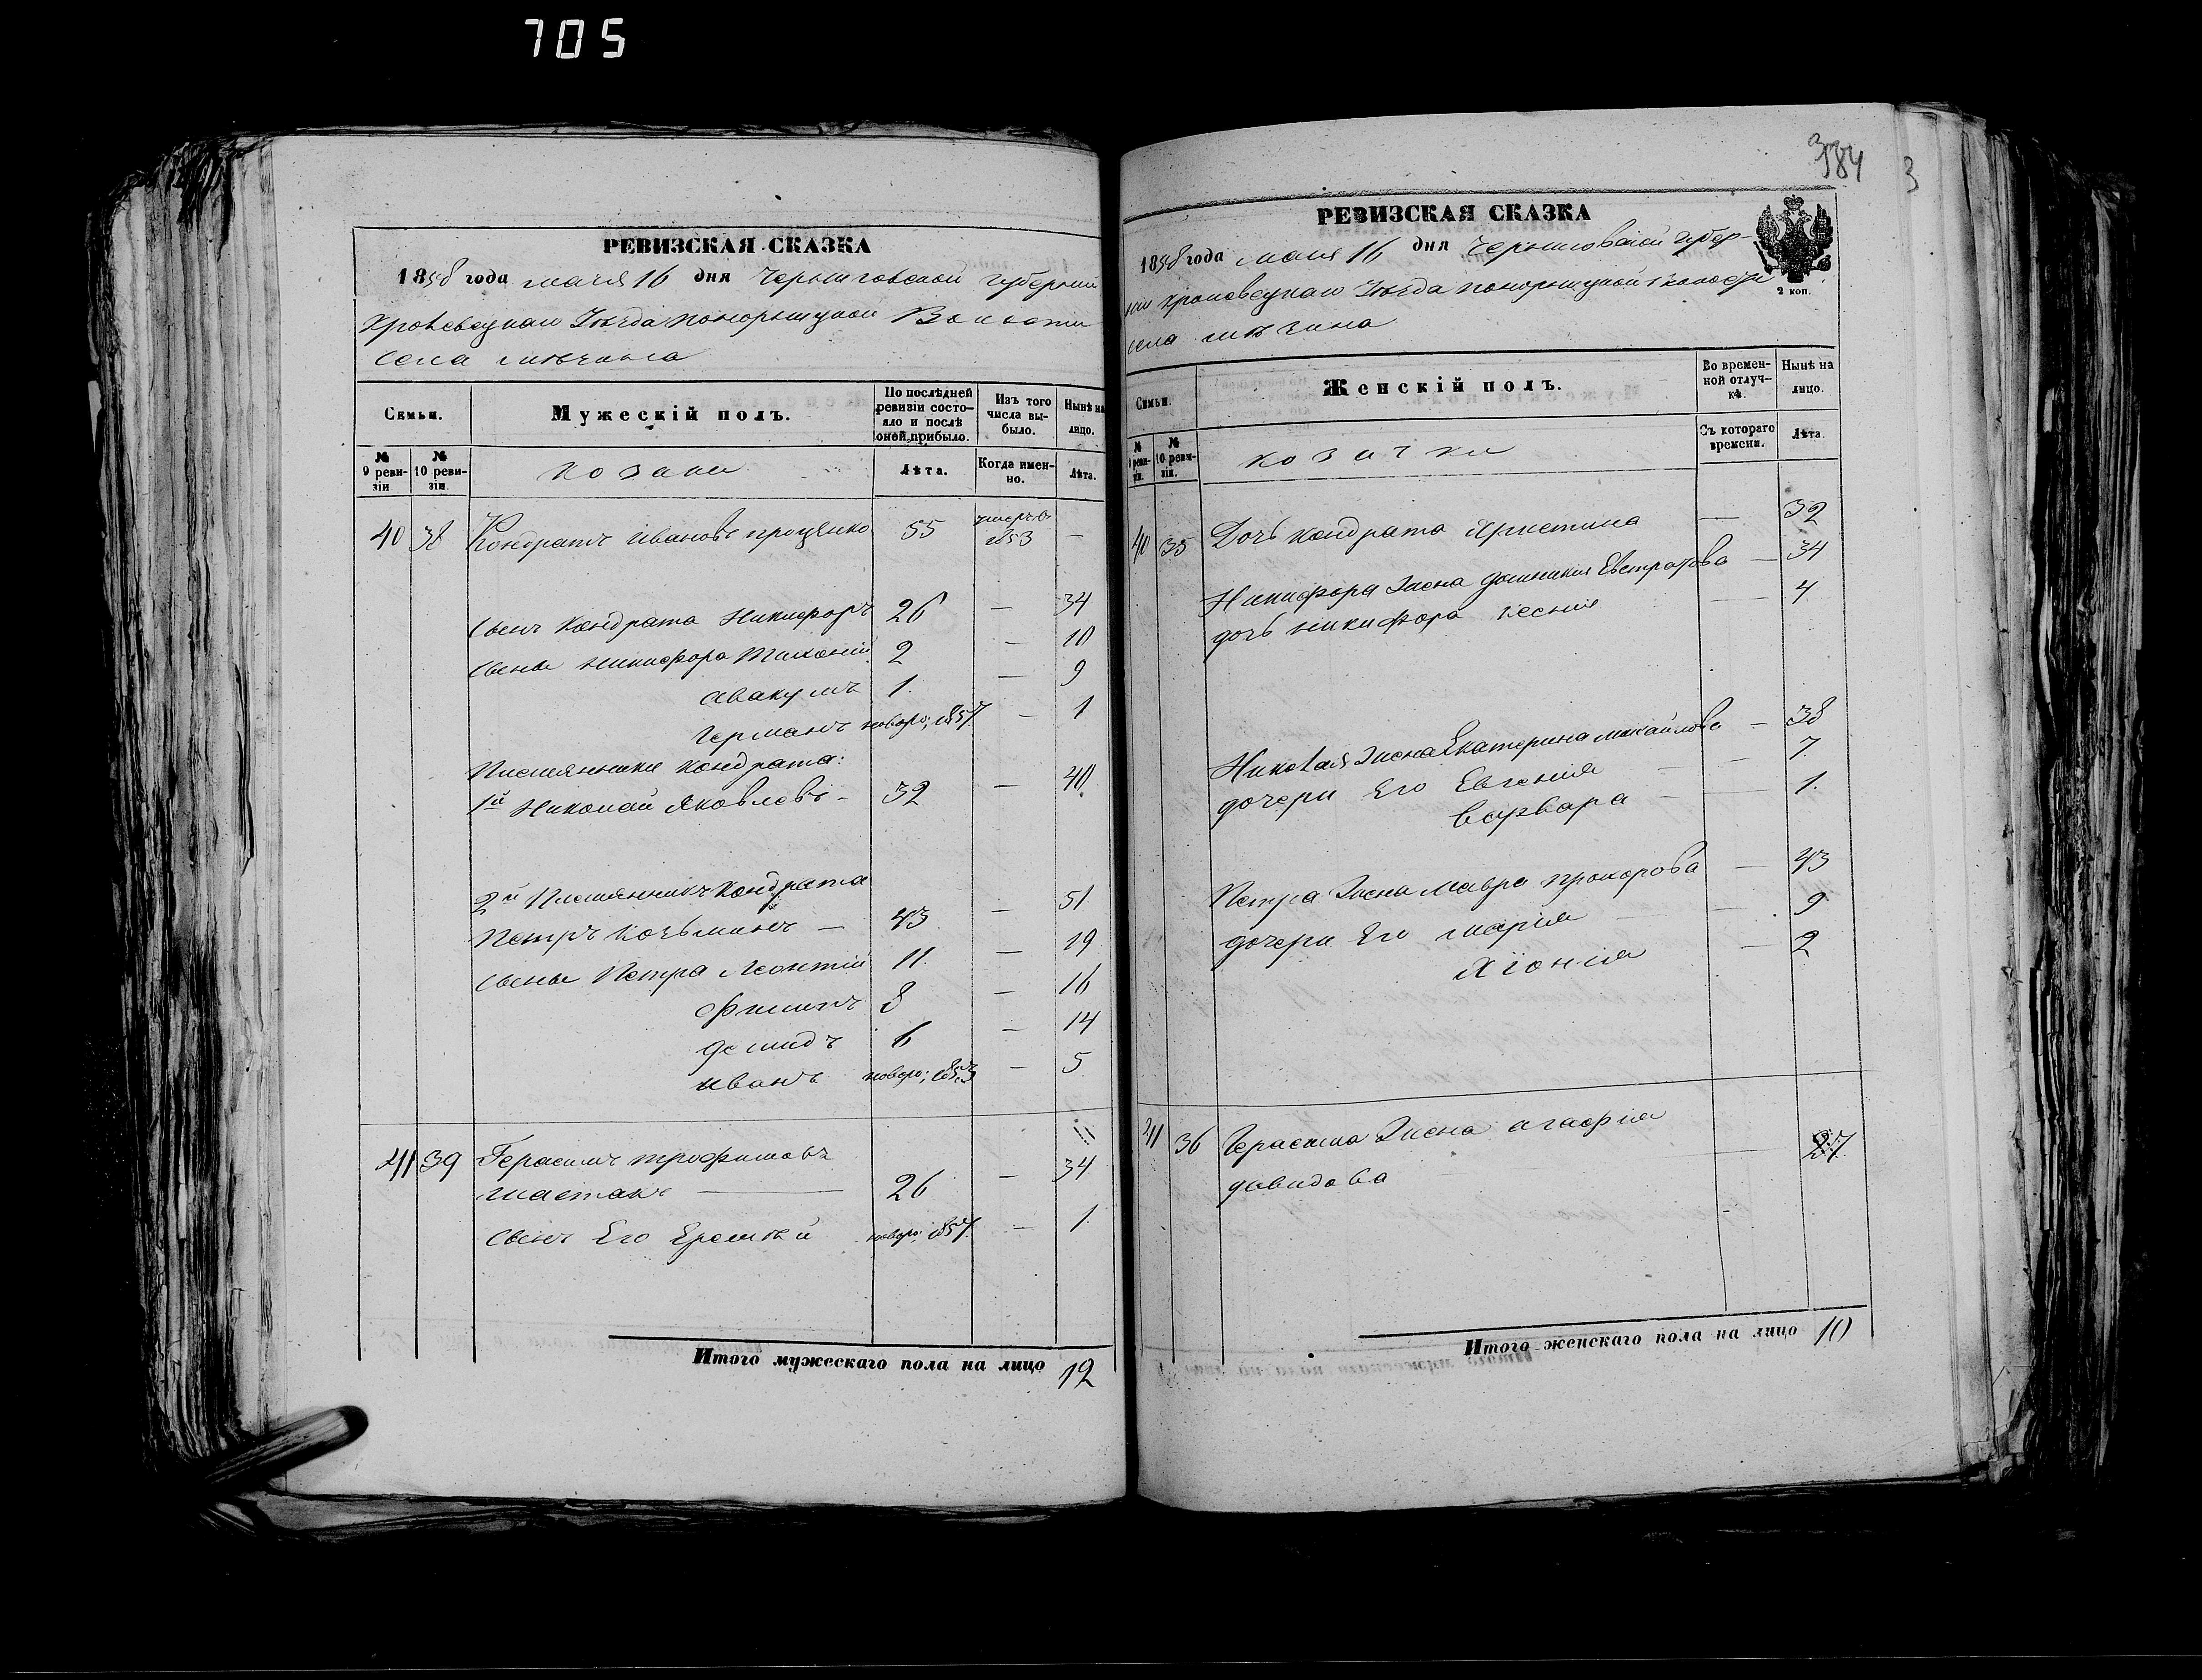 705
РЕВИЗСКАЯ СКАЗКА
1858 года мая 16 дня Черниговской губернии
Кролевецкаго Уезда Понорницкой Волости
села
Семьи.
Мужескій полъ.
По послѣдней ревизіи состояло и послѣ оней прибыло.
Изъ того числа выбыло.
Нынѣ на лицо.
№ 9 ревизіи
№ 10 ревизіи.
козаки
Лѣта.
Когда именно.
Лѣта.
40 38 Кондратъ Ивановъ Проценко 55 умеръ в 1853 —
Сынъ Кондрата Никифоръ 26 — 34
Сыны Никифора Тихоній 2 — 10
Авакумъ 1 — 9
Германъ новоро; 1857 — 1
Племянники Кондрата:
1й Николай Яковлевъ — 32 — 40
2й Племянникъ Кондрата
Петръ Козьминъ — 43 — 51
Сыны Петра Леонтій 11 — 19
Филипъ 8 — 16
Демидъ 6 — 14
Иванъ новоро; 1853 — 5
41 39 Герасимъ Трофимовъ
Шастакъ — 26 — 34
Сынъ Его Еремѣй новоро; 1857 — 1
Итого мужескаго пола на лицо 12
384
3
РЕВИЗСКАЯ СКАЗКА
1858 года мая 16 дня Черниговской губер-
нии Кролевецкаго Уезда Понорницкой Волости
села
2 коп.
Семьи.
Женскій полъ.
Во временной отлучкѣ.
Нынѣ на лицо.
№ 9 ревизіи.
№ 10 ревизіи.
козачки
Съ котораго времени.
Лѣта.
40 35 Дочь Кондрата Христина — 32
Никифора Жена Домникия Евстратова — 34
дочь Никифора Ксения — 4
Николая Жена Екатерина Михайлова — 38
дочери Его Евгения — 7
Варвара — 1
Петра Жена Мавра Прохорова — 43
дочери Его Марія — 9
Хіонія — 2
41 36 Герасима Жена Агафія
Давидова — 27
Итого женскаго пола на лицо 10